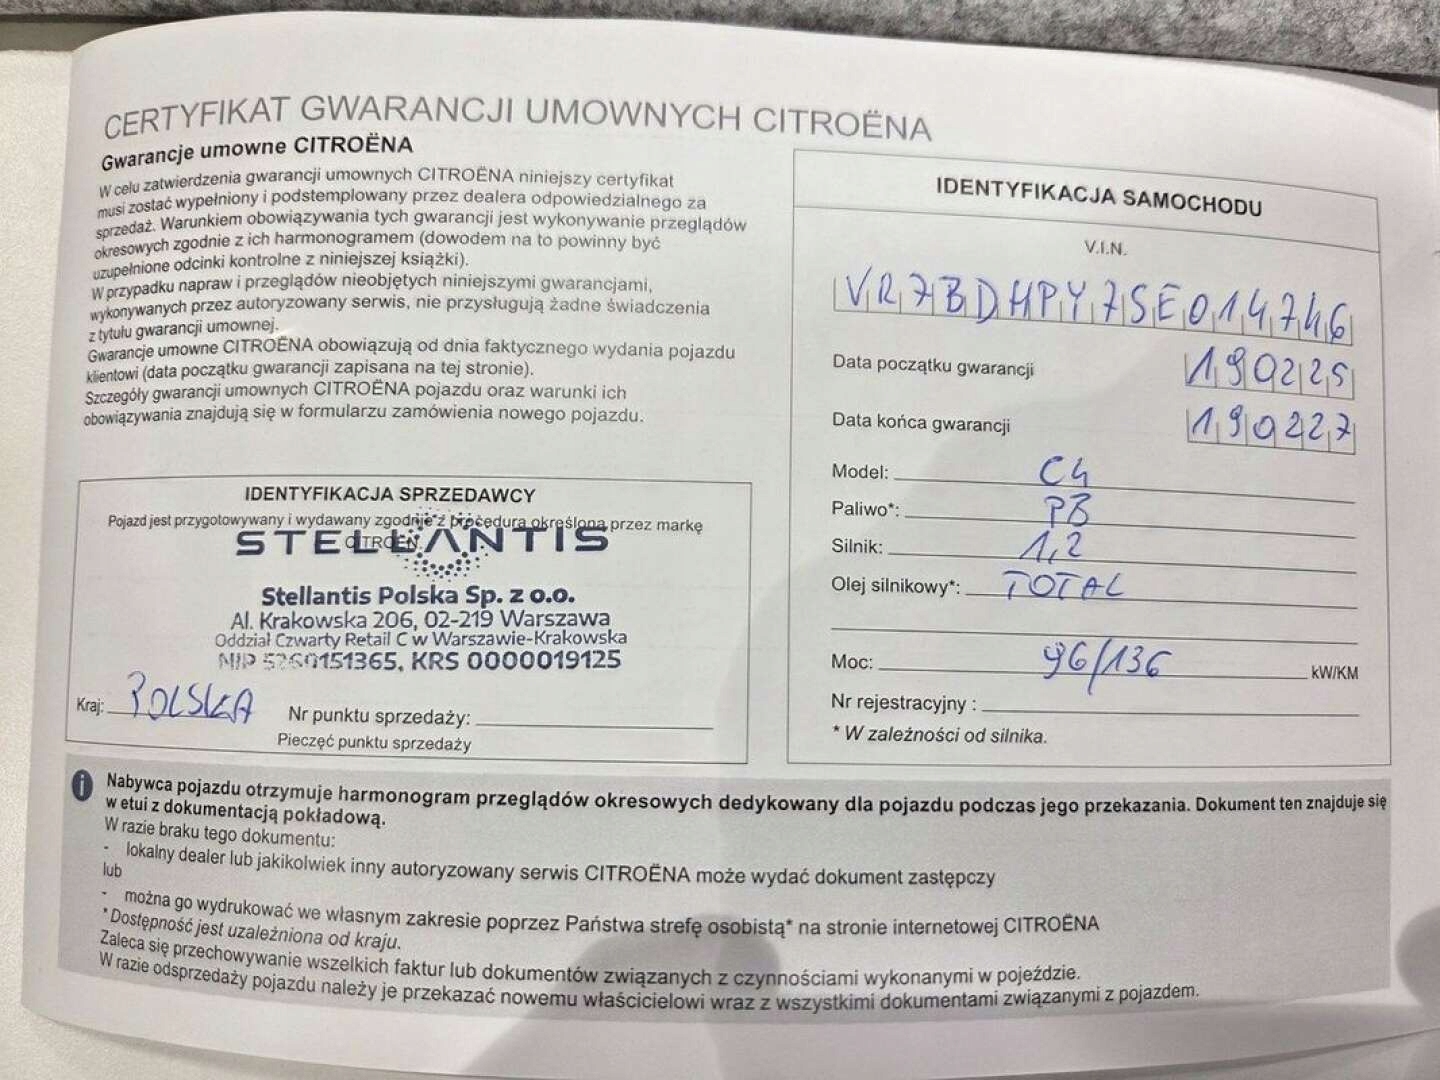 CERTYFIKAT GWARANCJI UMOWNYCH CITROËNA
Gwarancje umowne CITROËNA
W celu zatwierdzenia gwarancji umownych CITROËNA niniejszy certyfikat
musi zostać wypełniony i podstemplowany przez dealera odpowiedzialnego za
sprzedaż. Warunkiem obowiązywania tych gwarancji jest wykonywanie przeglądów
okresowych zgodnie z ich harmonogramem (dowodem na to powinny być
uzupełnione odcinki kontrolne z niniejszej książki).
W przypadku napraw i przeglądów nieobjętych niniejszymi gwarancjami,
wykonywanych przez autoryzowany serwis, nie przysługują żadne świadczenia
z tytułu gwarancji umownej.
Gwarancje umowne CITROËNA obowiązują od dnia faktycznego wydania pojazdu
klientowi (data początku gwarancji zapisana na tej stronie).
Szczegóły gwarancji umownych CITROËNA pojazdu oraz warunki ich
obowiązywania znajdują się w formularzu zamówienia nowego pojazdu.
IDENTYFIKACJA SPRZEDAWCY
Pojazd jest przygotowywany i wydawany zgodnie z procedurą określoną przez markę
CITROËN.
STELLANTIS
Stellantis Polska Sp. z o.o.
Al. Krakowska 206, 02-219 Warszawa
Oddział Czwarty Retail C w Warszawie-Krakowska
NIP 5260151365, KRS 0000019125
Kraj: POLSKA Nr punktu sprzedaży:
Pieczęć punktu sprzedaży
IDENTYFIKACJA SAMOCHODU
V.I.N.
VR7BDHPY7SE014746
Data początku gwarancji 190225
Data końca gwarancji 190227
Model: C4
Paliwo*: PB
Silnik: 1,2
Olej silnikowy*: TOTAL
Moc: 96/136 kW/KM
Nr rejestracyjny :
* W zależności od silnika.
i Nabywca pojazdu otrzymuje harmonogram przeglądów okresowych dedykowany dla pojazdu podczas jego przekazania. Dokument ten znajduje się
w etui z dokumentacją pokładową.
W razie braku tego dokumentu:
- lokalny dealer lub jakikolwiek inny autoryzowany serwis CITROËNA może wydać dokument zastępczy
lub
- można go wydrukować we własnym zakresie poprzez Państwa strefę osobistą* na stronie internetowej CITROËNA
* Dostępność jest uzależniona od kraju.
Zaleca się przechowywanie wszelkich faktur lub dokumentów związanych z czynnościami wykonanymi w pojeździe.
W razie odsprzedaży pojazdu należy je przekazać nowemu właścicielowi wraz z wszystkimi dokumentami związanymi z pojazdem.